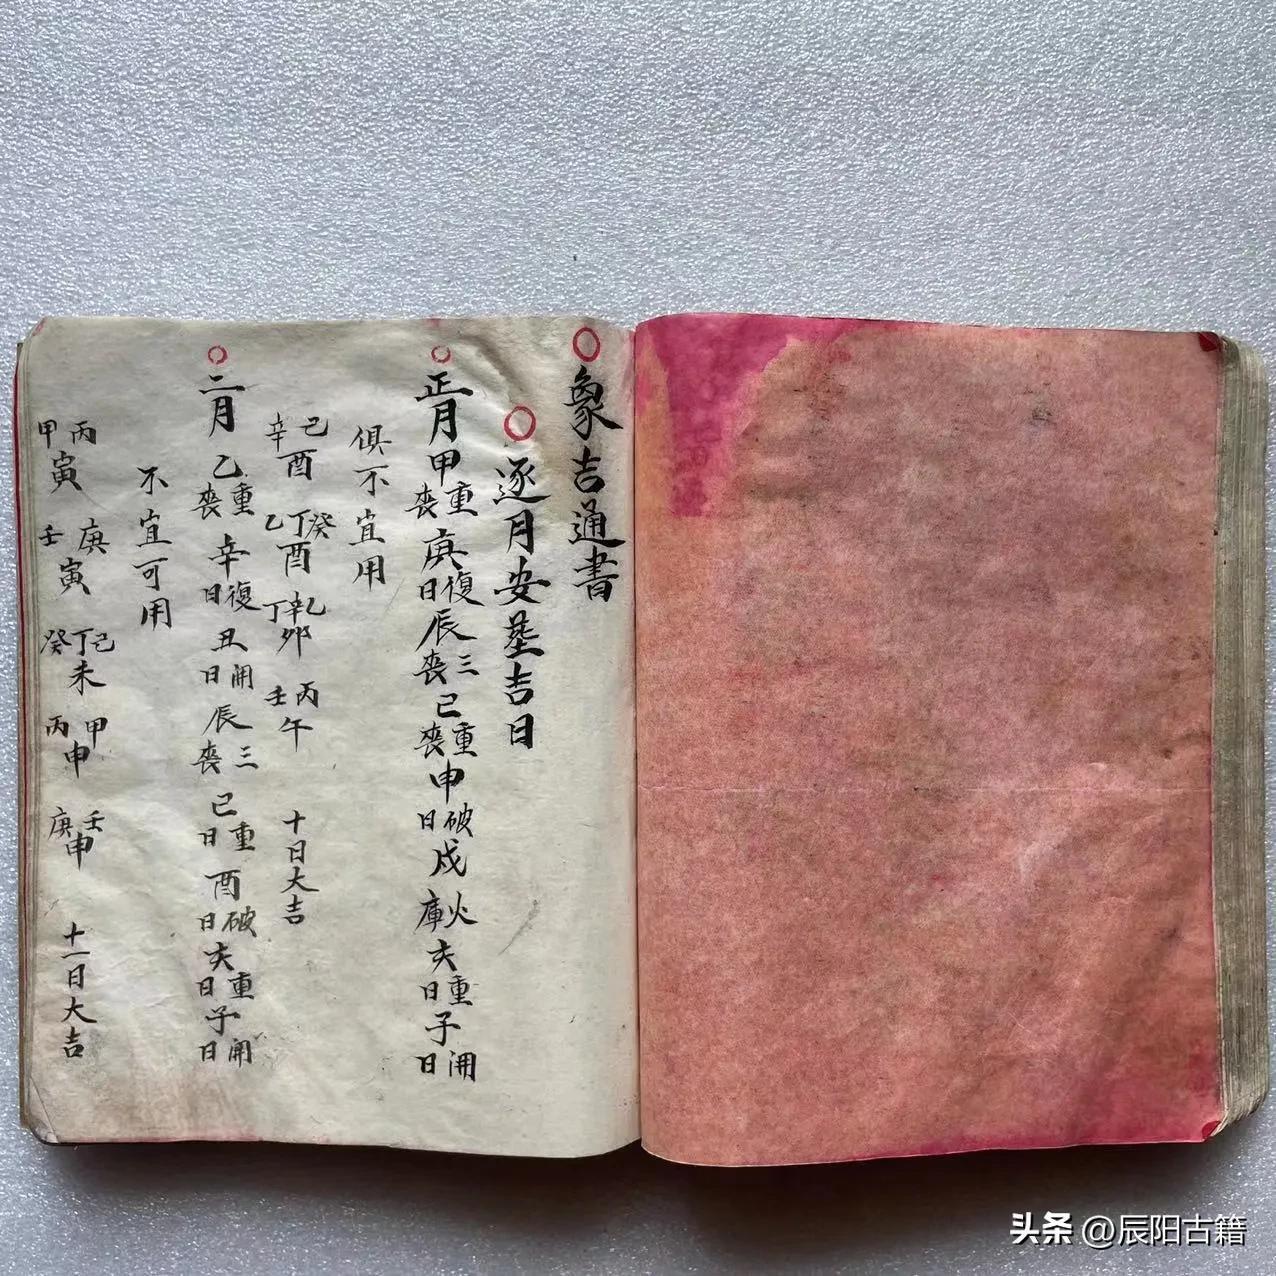 象吉通書
逐月安塟吉日
正月甲重喪庚復日辰三喪巳重喪申破日戍火庫亥重日子開日
俱不宜用
己辛酉 癸丁乙酉 乙辛丁卯 丙壬午 十日大吉
二月乙重喪辛復日丑開日辰三喪巳重日酉破日亥重日子開日
不宜可用
丙甲寅 庚壬寅 己丁癸未 甲丙申 壬庚申 十一日大吉
头条 @辰阳古籍